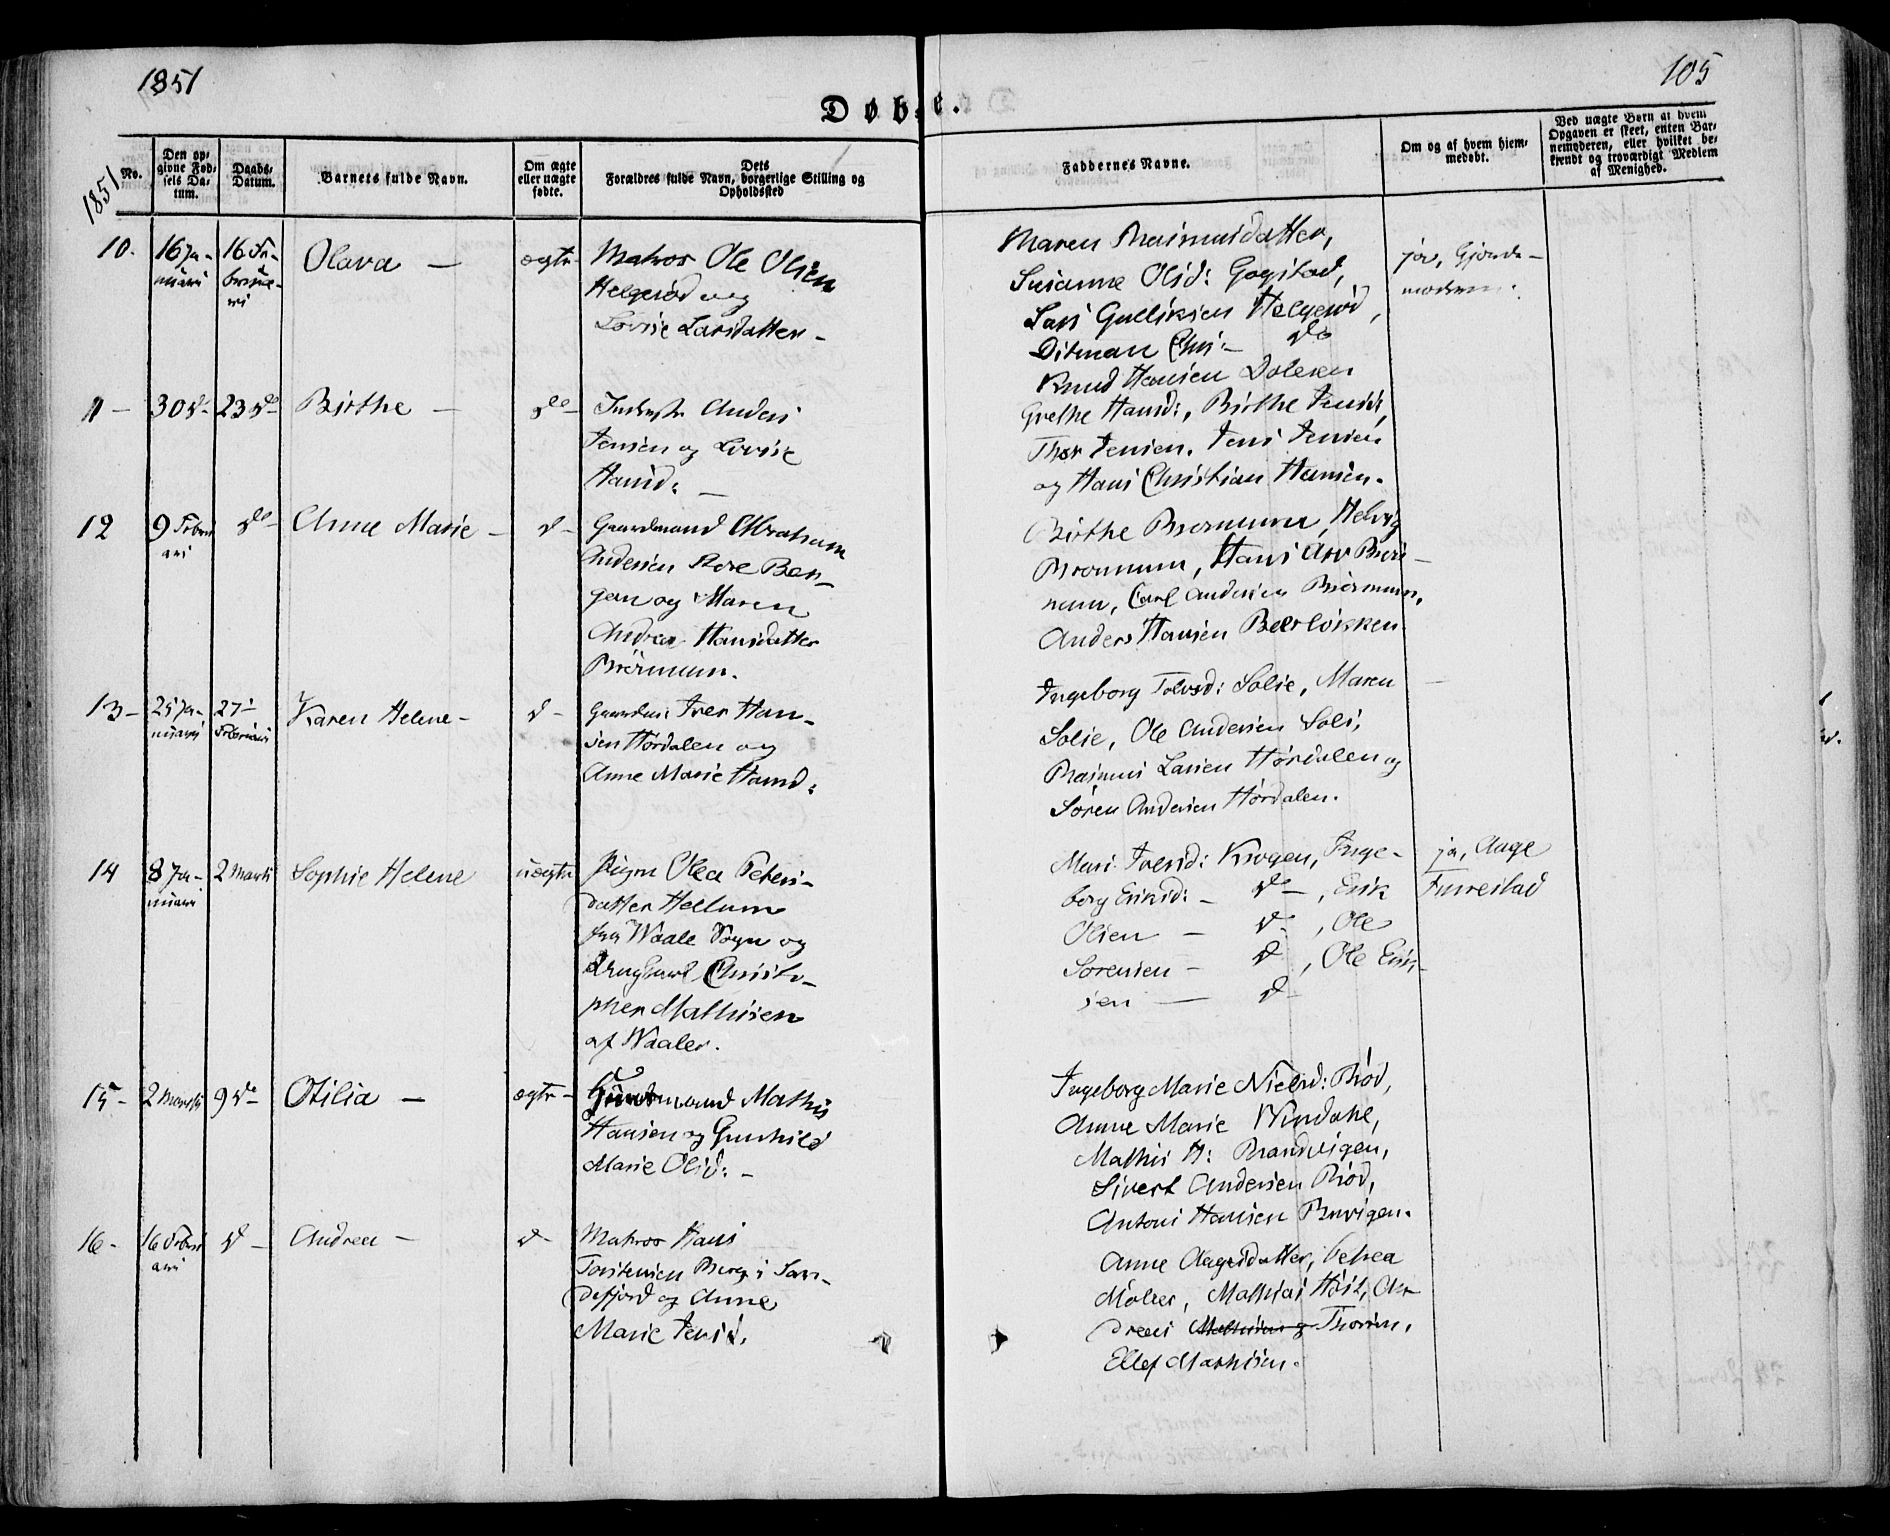 1851
105
Døbte.
1851
No.
Den opgivne Fødsels Datum.
Daabs-Datum.
Barnets fulde Navn.
Om ægte eller uægte fødte.
Dets Forældres fulde Navn, borgerlige Stilling og Opholdssted
Faddernes Navne.
Om og af hvem hjemmedøbt.
Ved uægte Børn at hvem Opgaven er skeet, enten Barnemoderen, eller hvilket bekjendt og troværdigt Medlem af Menighed.
10. 16 Januari 16 Februari Olava — ægte
Matros Ole Olsen
Helgerød og
Lovise Larsdatter –
Maren Rasmusdatter,
Susanne Olsd: Gogstad,
Lars Gulliksen Helgerød,
Ditman Chri– do
Knud Hansen Dolven
ja, Gjorde–
moderen.
11 – 30 d– 23 do Birthe — do–
Anders
Jensen og Lovise
Hansd: –
Grethe Hansd:, Birthe Jensd,
Thor Jensen, Jens Jensen
og Hans Christian Hansen.
12 9 Februari do– Anne Marie – d–
Gaardmand Abraham
Andersen Store Ber–
gan og Maren
Andrea Hansdatter
Brørmum.
Birthe Brørmum, Helvig
Brømum, Hans
num, Carl Andersen Brørmum,
Anders Hansen
13 – 25 Januari 27– Februari Karen Helene – d–
Gaardm: Iver Han–
sen Hørdalen og
Anne Marie Hansd:
Ingeborg Tolvsd: Solie, Maren
Solie, Ole Andersen Soli,
Rasmus Larsen Hørdalen og
Søren Andersen Hørdalen.
14 8 Januari 2 Marti Sophie Helene uægte
Pigen Olea Peters–
datter Hellum
fra Waale Sogn og
Ungkarl Christo–
pher Mathisen
af Waaler.
Mari Iversd: Krogen, Inge–
borg Eriksd: – do –, Erik
Olsen — d–, Ole
Sørensen – d, Ole Erik–
sen — d–
ja, Aage
Furrestad
15 – 2 Marti 9 do– Otilia — ægte –
Huusmand Mathis
Hansen og Gunhild
Marie Olsd: –
Ingeborg Marie Nielsd: Rød,
Anne Marie Windahl,
Mathis H: Brandvigen,
Sivert Andersen Rød,
Anton Hansen
16 – 16 Februari d – Andrea – d–
Matros Hans
Torstensen Berg i San–
defjord og Anne
Marie Jensd.
Anne Aagesdatter, Petrea
Møller, Mathias Høst, An–
dreas Mathisen og Thorsen,
Ellef Mathisen.